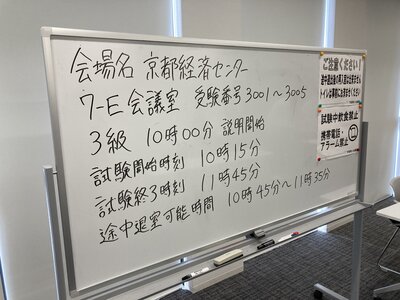 会場名 京都経済センター
7-E会議室 受験番号3001～3005
3級 10時00分 説明開始
試験開始時刻 10時15分
試験終了時刻 11時45分
途中退室可能時間 10時45分～11時35分
ご注意ください！
試験中飲食禁止
携帯電話・
アラーム禁止